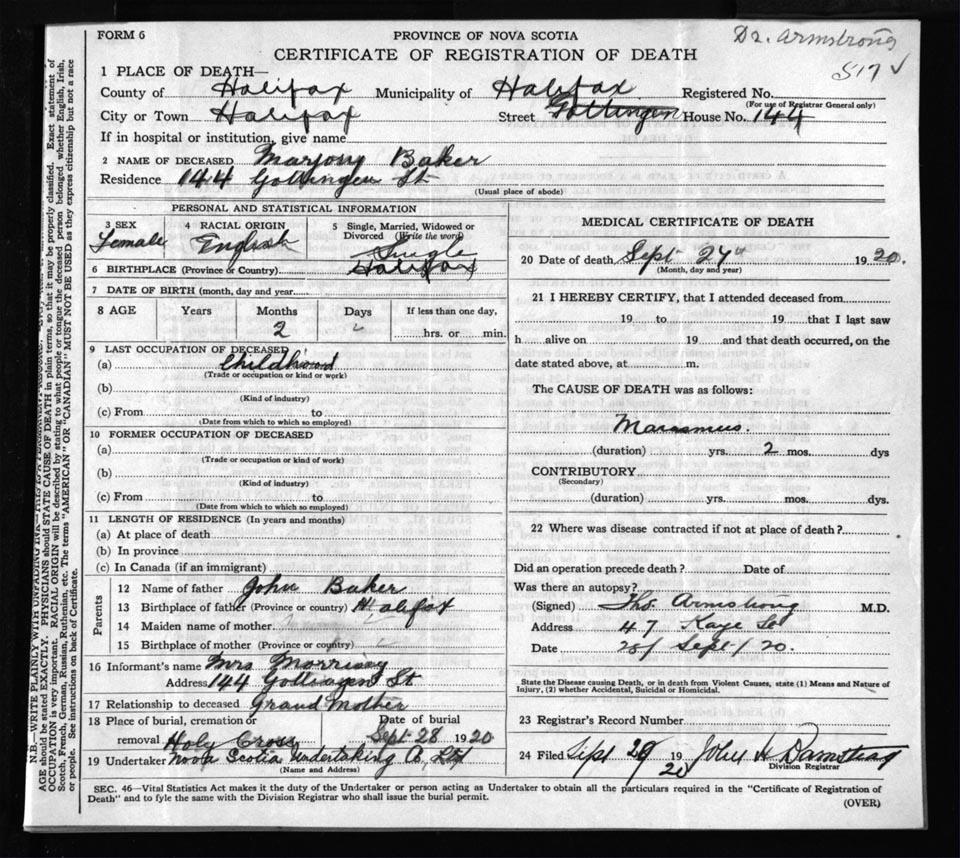 FORM 6
PROVINCE OF NOVA SCOTIA
Dr. Armstrong
CERTIFICATE OF REGISTRATION OF DEATH
517 ✓
1 PLACE OF DEATH—
County of Halifax Municipality of Halifax Registered No.
(For use of Registrar General only)
City or Town Halifax Street Gottingen House No. 144
If in hospital or institution, give name
2 NAME OF DECEASED Marjory Baker
Residence 144 Gottingen St
(Usual place of abode)
PERSONAL AND STATISTICAL INFORMATION
3 SEX 4 RACIAL ORIGIN 5 Single, Married, Widowed or
Divorced (Write the word)
Female English Single
6 BIRTHPLACE (Province or Country) Halifax
7 DATE OF BIRTH (month, day and year)
8 AGE Years Months Days If less than one day,
2 hrs. or min.
9 LAST OCCUPATION OF DECEASED
(a) Childhood
(Trade or occupation or kind or work)
(b)
(Kind of industry)
(c) From to
(Date from which to which so employed)
10 FORMER OCCUPATION OF DECEASED
(a)
(Trade or occupation or kind of work)
(b)
(Kind of industry)
(c) From to
(Date from which to which so employed)
11 LENGTH OF RESIDENCE (In years and months)
(a) At place of death
(b) In province
(c) In Canada (if an immigrant)
Parents
12 Name of father John Baker
13 Birthplace of father (Province or country) Halifax
14 Maiden name of mother
15 Birthplace of mother (Province or country)
16 Informant's name Mrs Morrisay
Address 144 Gottingen St
17 Relationship to deceased Grand Mother
18 Place of burial, cremation or Date of burial
removal Holy Cross Sept 28 1920
19 Undertaker Nova Scotia Undertaking Co, Ltd
(Name and Address)
MEDICAL CERTIFICATE OF DEATH
20 Date of death, Sept 27" 1920.
(Month, day and year)
21 I HEREBY CERTIFY, that I attended deceased from
19 to 19 that I last saw
h alive on 19 and that death occurred, on the
date stated above, at m.
The CAUSE OF DEATH was as follows:
Marasmus.
(duration) yrs. 2 mos. dys
CONTRIBUTORY
(Secondary)
(duration) yrs. mos. dys.
22 Where was disease contracted if not at place of death?
Did an operation precede death? Date of
Was there an autopsy?
(Signed) Tho. Armstrong M.D.
Address 47 Kaye St
Date 28/ Sept/ 20.
State the Disease causing Death, or in death from Violent Causes, state (1) Means and Nature of
Injury, (2) whether Accidental, Suicidal or Homicidal.
23 Registrar's Record Number
24 Filed Sept 29 1920 John H
Division Registrar
SEC. 46—Vital Statistics Act makes it the duty of the Undertaker or person acting as Undertaker to obtain all the particulars required in the "Certificate of Registration of
Death" and to fyle the same with the Division Registrar who shall issue the burial permit.
(OVER)
N.B.—WRITE PLAINLY WITH UNFADING INK—THIS IS A PERMANENT RECORD.
AGE should be stated EXACTLY. PHYSICIANS should STATE CAUSE OF DEATH in plain terms, so that it may be properly classified. Exact statement of
OCCUPATION is very important. RACIAL ORIGIN will be described by stating to what people or tongue the deceased person belonged whether English, Irish,
Scotch, French, German, Russian, Ruthenian, etc. The terms "AMERICAN" OR "CANADIAN" MUST NOT BE USED as they express citizenship but not a race
or people. See instructions on back of Certificate.